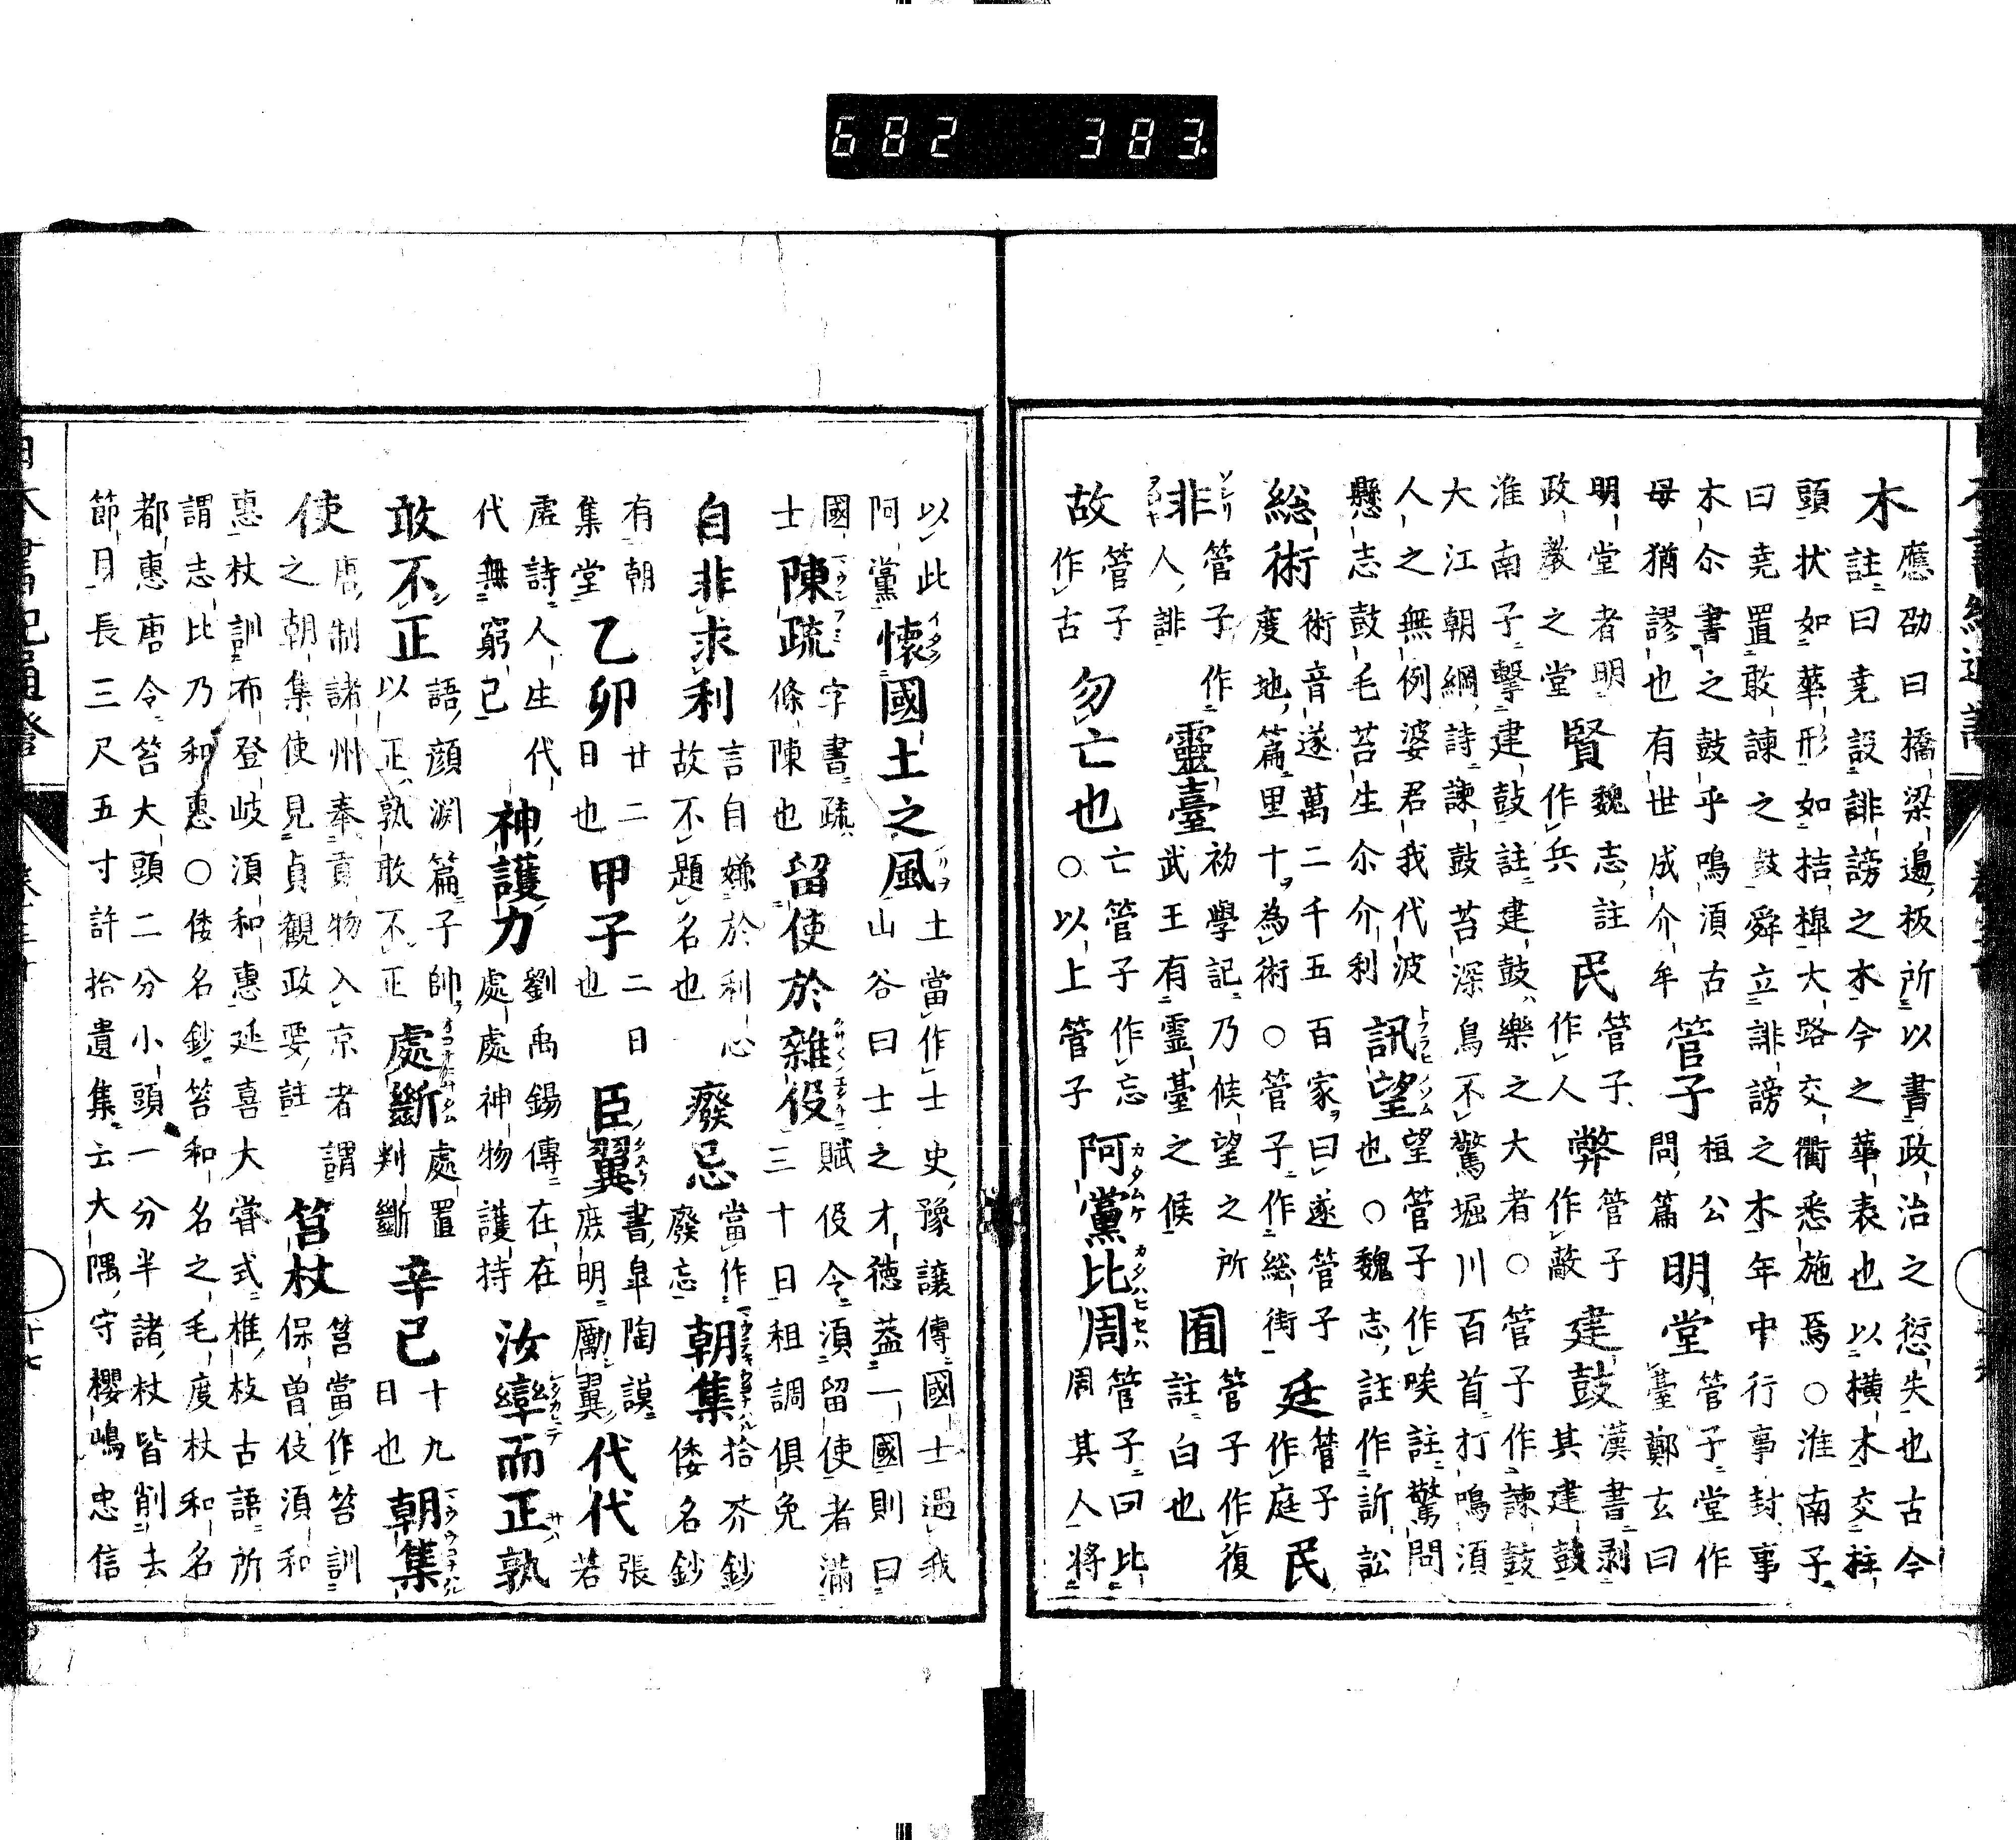 682 383
應劭曰橋梁邊板所以書政治之愆失也古今
木註曰堯設誹謗之木今之華表也以橫木交柱
頭状如華形如桔槹大路交衢悉施焉○淮南子
曰堯置敢諫之鼓舜立誹謗之木年中行事封事
木尒書之鼓乎鳴湏古
母猶謬也有世成介年
管子
桓公
問篇
明堂
管子堂作
臺鄭玄曰
明堂者明
政教之堂
賢
魏志註
作兵
民
管子
作人
弊
管子
作蔽
建鼓
漢書剥
其建鼓
淮南子擊建鼓註建鼓樂之大者○管子作諫鼓
大江朝綱詩諫鼓苔深鳥不驚堀川百首打鳴湏
人之無例婆君我代波
懸志鼓毛苔生尒介利
訊望
トフラヒノソム
望管子作唉註驚問
也○魏志註作訴訟
総術
術音遂萬二千五百家曰遂管子
度地篇里十為術○管子作総街
廷
管子
作庭
民
非
ソシリ
管子作
人誹
靈臺
初學記乃候望之所
武王有霊臺之候
囿
管子作復
註白也
故
管子
作古
勿亡也
亡管子作忘
○以上管子
阿黨比周
カタムケ
カタハヒセハ
管子曰比
周其人將
以此
阿黨
懷國土之風
土當作士史豫讓傳國士遇我
山谷曰士之才徳蓋一國則曰
國
士
陳疏
字書疏
條陳也
留使於雜役
賦役令湏留使者滿
三十日租調俱免
自非求利
言自嫌於利心
故不題名也
廢忌
當作
廢忘
朝集
拾芥鈔
倭名鈔
有朝
集堂
乙卯
廿二
日也
甲子
二日
也
臣翼
書皐陶謨
庶明勵翼
代代
張
若
虚詩人生代
代無窮已
神護力
劉禹錫傳在在
處處神物護持
汝率而正孰
敢不正
語顔淵篇子帥
以正孰敢不正
處斷
處置
判斷
辛已
十九
日也
朝集
使
唐制諸州奉貢物入京者謂
之朝集使見貞觀政要註
笞杖
笞當作笞訓
保曽伎湏和
惠杖訓布登岐湏和惠延喜大甞式椎杖古語所
謂志比乃和惠○倭名鈔笞和名之毛度杖和名
都惠唐令笞大頭二分小頭一分半諸杖皆削去
節目長三尺五寸許拾遺集云大隅守櫻嶋忠信